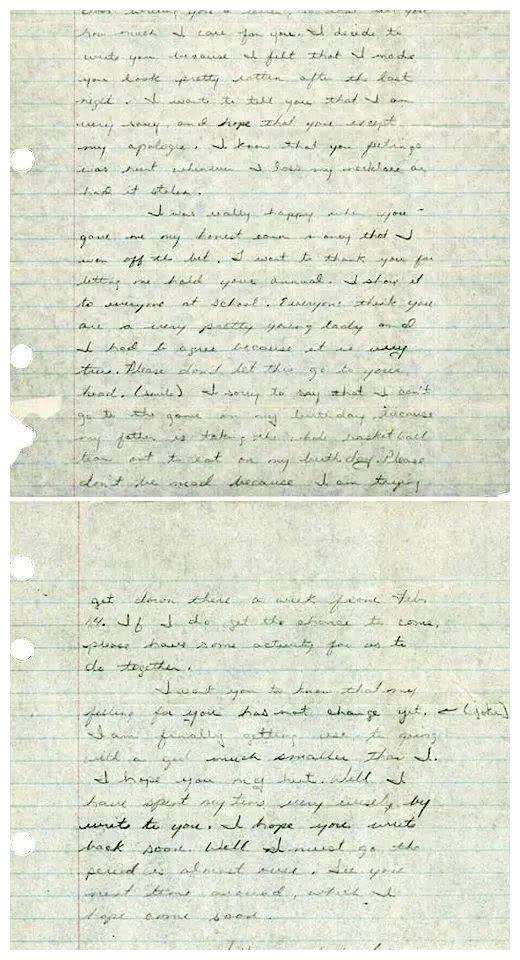 how much I care for you. I decide to
write you because I felt that I made
you look pretty rotten after the last
night. I want to tell you that I am
very sorry and hope that you except
my apologie. I know that you feelings
was hurt whenever I loss my necklace or
had it stolen.
I was really happy when you
gave me my honest earn money that I
won off the bet. I want to thank you for
letting me hold your annual. I show it
to everyone at school. Everyone think you
are a very pretty young lady and
I had to agree because it is very
true. Please don't let this go to your
head. (smile) I sorry to say that I can't
go to the game on my birthday because
my father is taking the whole basketball
team out to eat on my birthday. Please
don't be mad because I am trying
get down there a week from Feb.
14. If I do get the chance to come,
please have some activity for us to
do together.
I want you to know that my
feeling for you has not change yet. ← (joke)
I am finally getting use to going
with a girl much smaller than I.
I hope you my hurt. Well I
have spent my time very wisely by
write to you. I hope you write
back soon. Well I must go the
period is almost over. See you
next time around, which I
hope come soon.